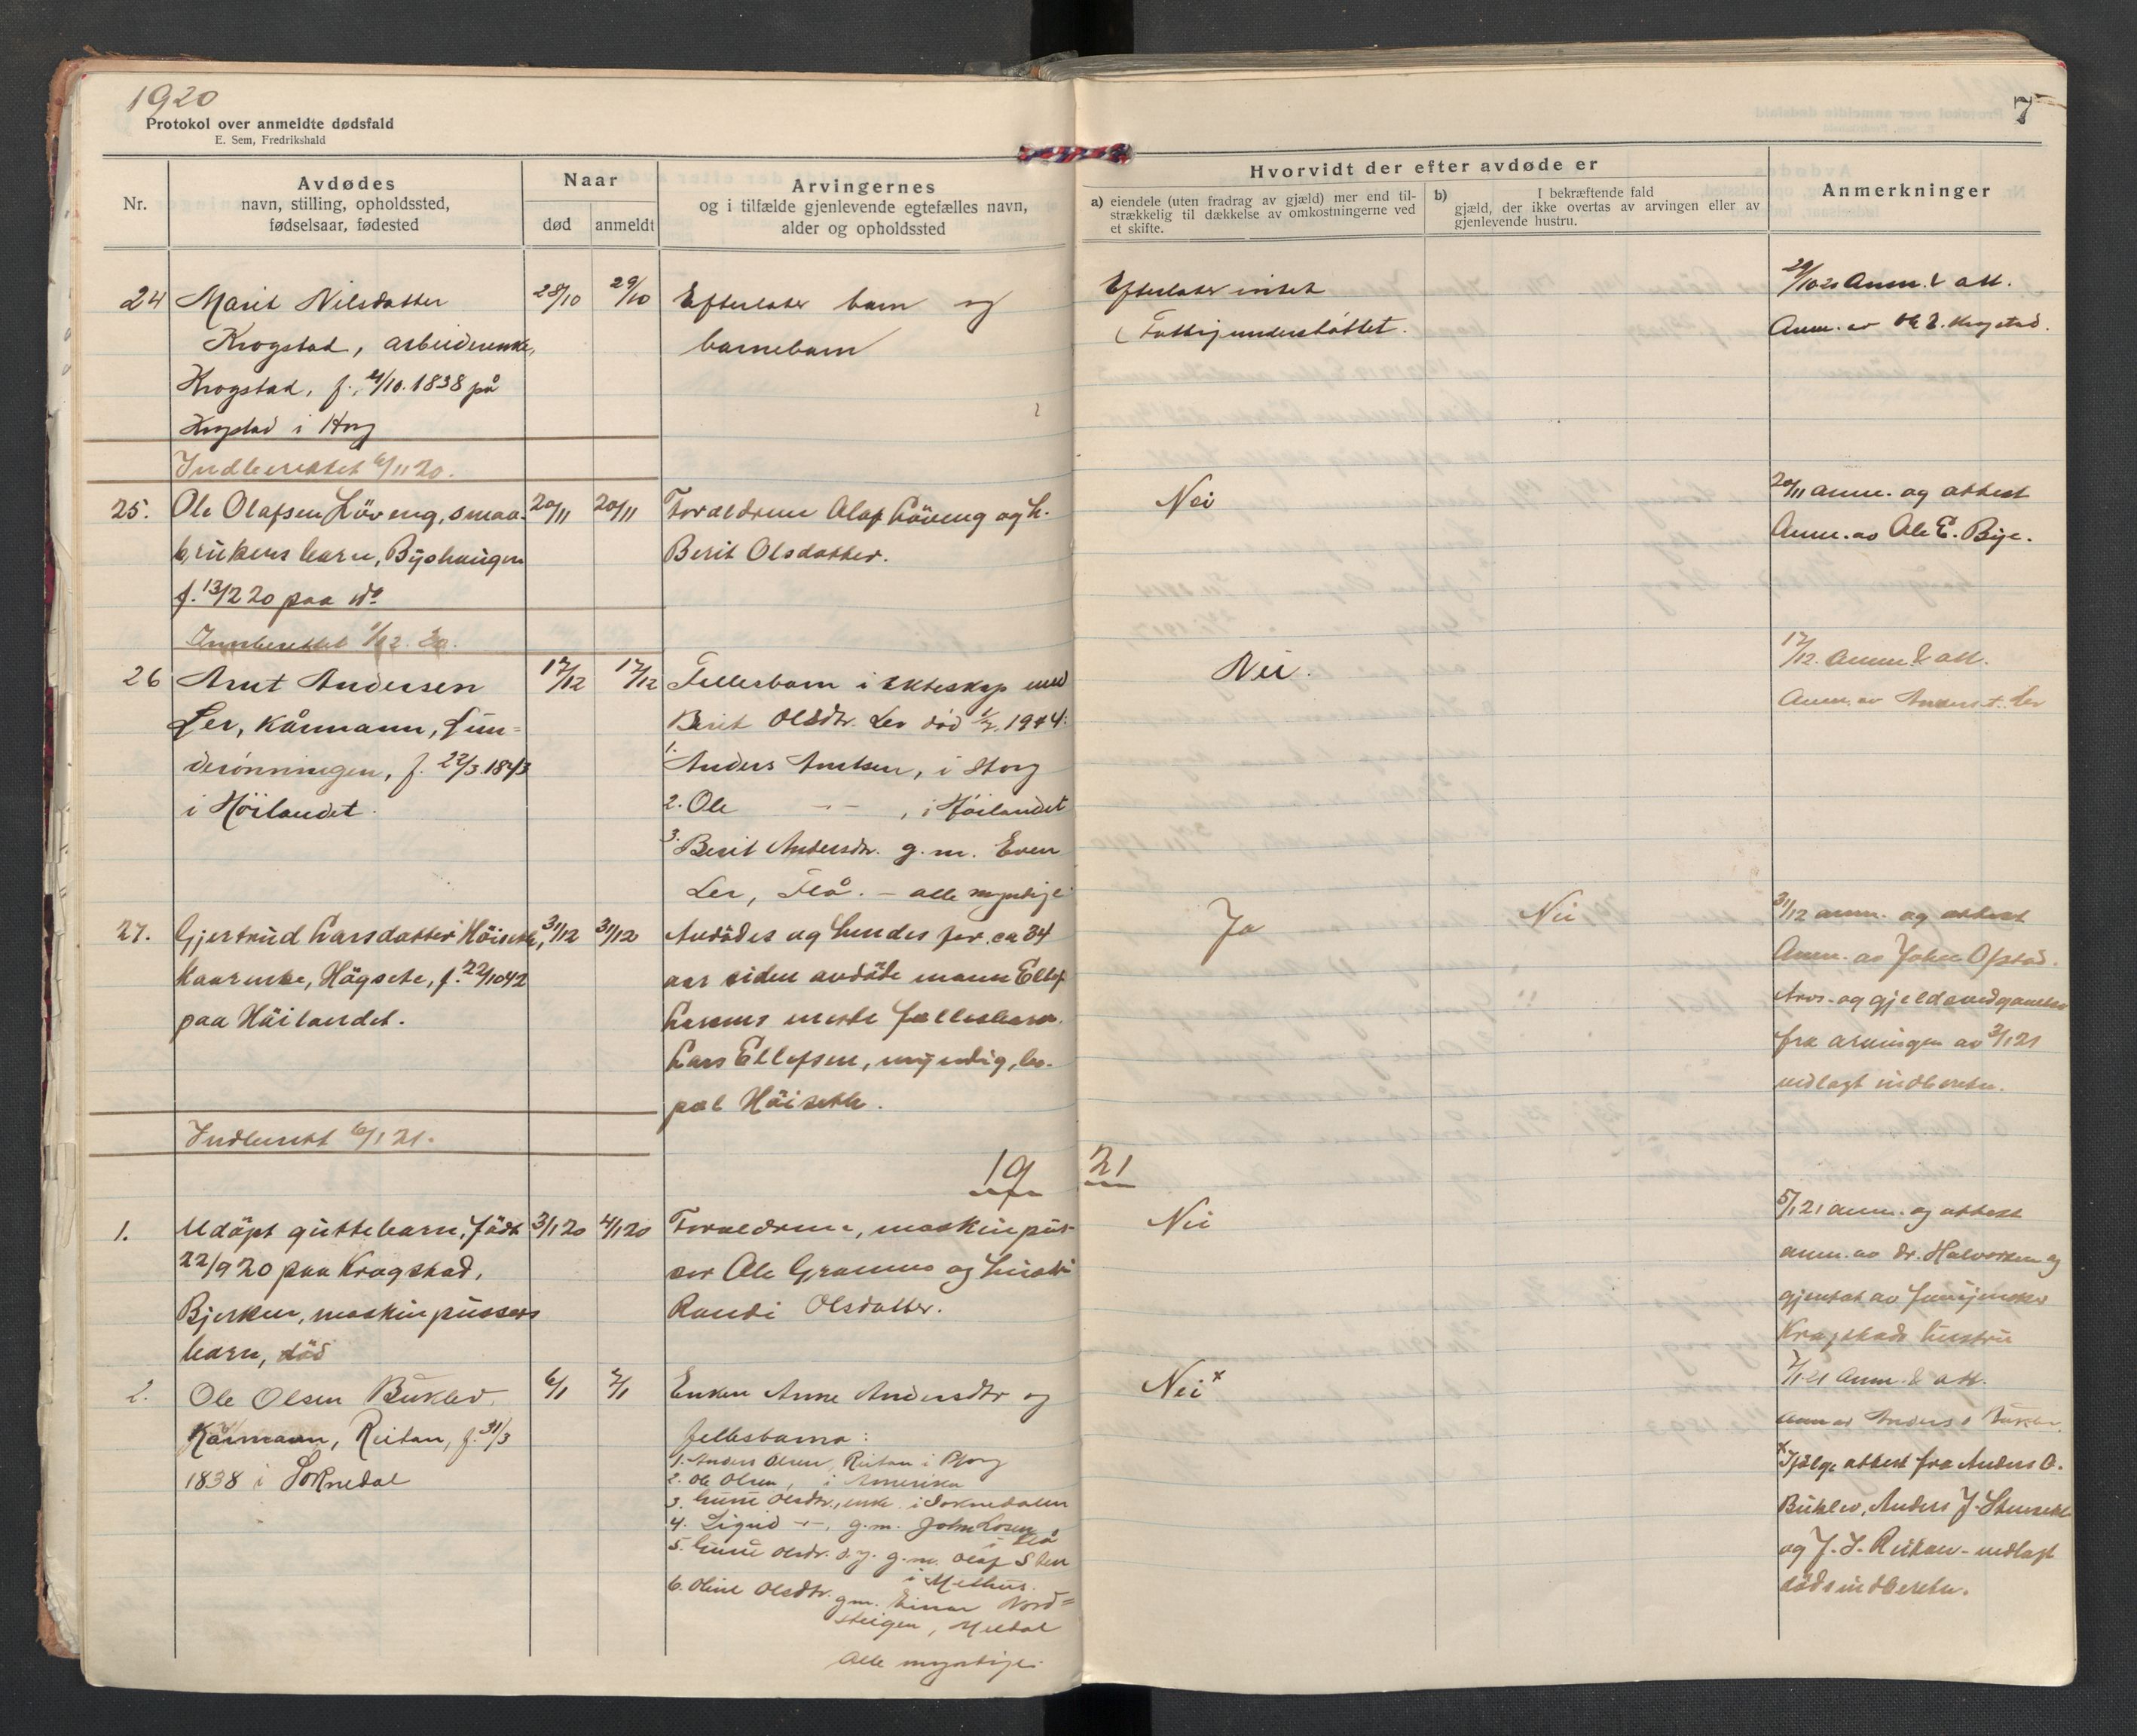 1920
Protokol over anmeldte dødsfald
E. Sem, Fredrikshald
7
Nr.
Avdødes
navn, stilling, opholdssted,
fødselsaar, fødested
Naar
død
anmeldt
Arvingernes
og i tilfælde gjenlevende egtefælles navn,
alder og opholdssted
Hvorvidt der efter avdøde er
a) eiendele (uten fradrag av gjæld) mer end til-
strækkelig til dækkelse av omkostningerne ved
et skifte.
b) I bekræftende fald
gjæld, der ikke overtas av arvingen eller av
gjenlevende hustru.
Anmerkninger
24 Marit Nilsdatter
Krogstad, arbeiderenke,
Krogstad, f. 4/10.1838 på
Krogstad i Horg
28/10 29/10
Efterlater barn og
barnebarn
Efterlater intet
(Fattigunderstöttet.
29/10 20 Anm. & att.
Anm. av Ole E. Krogstad.
Indberettet 6/11 20.
25. Ole Olafsen Löveng, smaa-
brukers barn, Byshaugen
f. 13/2 20 paa do
20/11 20/11
Foreldrene Olaf Löveng og h.
Berit Olsdatter.
Nei
20/11 anm. og attest
Anm. av Ole E. Bye.
Innberettet 1/12. 20.
26 Arnt Andersen
Ler, kårmann, Lun=
derönningen, f. 22/3.1843
i Höilandet.
17/12 17/12
Fellesbarn i ekteskap med
Berit Olsdtr. Ler död 1/2. 1944:
1. Anders Arntsen, i Horg
2. Ole -"- , i Höilandet
3. Berit Andersdtr. g.m. Even
Ler, Flå. - alle myndige
Nei.
17/12. Anm. & att.
Anm. av Anders A. Ler
27. Gjertrud Larsdatter Höiseth,
kaarenke, Högsete, f. 22/10 42
paa Höilandet.
31/12 31/12
Avdödes og hendes for ca 34
aar siden avdöde mann Ellef
Larsens eneste fellesbarn
Lars Ellefsen, myndig, bo-
pæl Höiseth.
Ja
Nei
31/12 anm. og attest
Anm. av John Opstad.
Arvs- og gjeldsvedgaaelse
fra arvingen av 3/1 21
vedlagt indberetn.
Indberett 6/1 21.
19 21
1. Udöpt guttebarn, födt
22/9 20 paa Krogstad,
Bjerken, maskinpussers
barn, död
3/1 20 4/1 20
Foreldrene, maskinpus-
ser Ole Gramm og hustru
Randi Olsdatter.
Nei
5/1 21 anm. og attest
anm. av dr. Halvorsen og
gjentat av
Krogstads hustru
2. Ole Olsen Buklev.
Kårmann, Reitan, f. 31/3
1838 i Soknedal
6/1 7/1
Enken Anne Andersdtr og
fellesbarna:
1. Anders Olsen, Reitan i Horg
2. Ole Olsen, i Amerika
3. Guru Olsdtr., enke i Soknedalen
4. Sigrid -"-, g.m. John Losen
i Flå
5. Guru Olsdr. d.y. g.m. Olaf Sten
i Melhus.
6. Oline Olsdtr. gm. Einar Nord=
steigen, Meldal
Alle myndige.
Nei x
7/1 21 Anm. & att.
Anm av Anders O Buklev.
x Ifölge attest fra Anders O.
Buklev, Anders J. Stenseth
og J. J. Reitan - vedlagt
dödsindberetn.